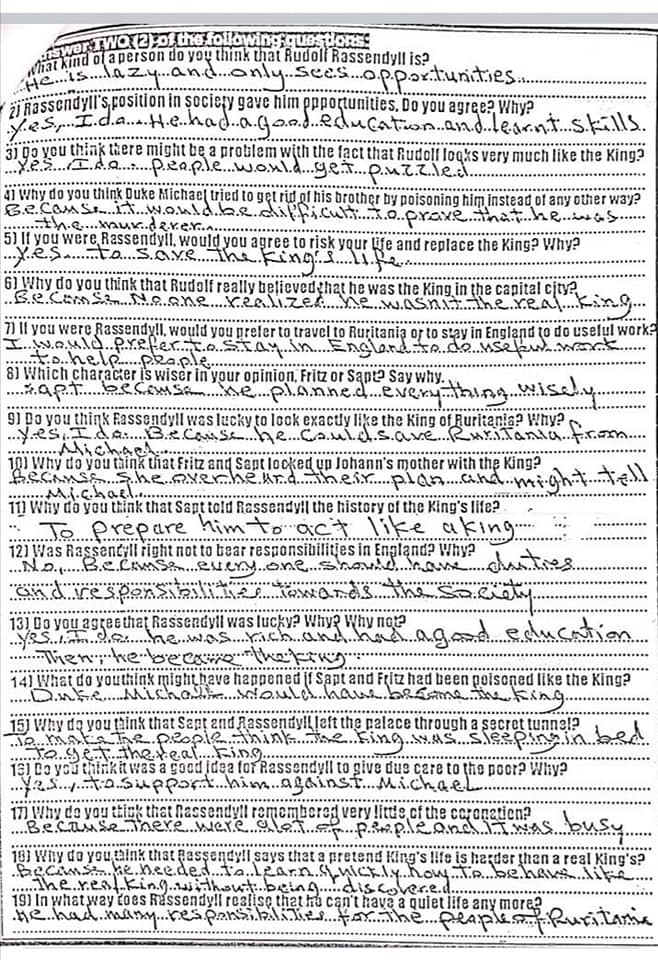 nswer TWO (2) of the following questions:
What kind of a person do you think that Rudolf Rassendyll is?
He is lazy and only sees opportunities.
2) Rassendyll's position in society gave him opportunities. Do you agree? Why?
Yes, I do. He had a good education and learnt skills.
3) Do you think there might be a problem with the fact that Rudolf looks very much like the King?
Yes I do. people would get puzzled
4) Why do you think Duke Michael tried to get rid of his brother by poisoning him instead of any other way?
Because it would be difficult to prove that he was
the murderer.
5) If you were Rassendyll, would you agree to risk your life and replace the King? Why?
Yes. to save the King's life.
6) Why do you think that Rudolf really believed that he was the King in the capital city?
Because No one realized he wasn't the real King
7) If you were Rassendyll, would you prefer to travel to Ruritania or to stay in England to do useful work?
I would prefer to stay in England to do useful work
to help people
8) Which character is wiser in your opinion, Fritz or Sapt? Say why.
sapt because he planned everything wisely
9) Do you think Rassendyll was lucky to look exactly like the King of Ruritania? Why?
Yes, I do. Because he could save Ruritania from
Michael.
10) Why do you think that Fritz and Sapt locked up Johann's mother with the King?
Because she overheard their plan and might tell
Michael.
11) Why do you think that Sapt told Rassendyll the history of the King's life?
To prepare him to act like a king
12) Was Rassendyll right not to bear responsibilities in England? Why?
No, Because every one should have duties
and responsibilities towards the society
13) Do you agree that Rassendyll was lucky? Why? Why not?
Yes, I do he was rich and had a good education
Then, he became the king.
14) What do you think might have happened if Sapt and Fritz had been poisoned like the King?
Duke Michael would have become the King
15) Why do you think that Sapt and Rassendyll left the palace through a secret tunnel?
To make the people think the King was sleeping in bed
to get the real King
16) Do you think it was a good idea for Rassendyll to give due care to the poor? Why?
Yes, to support him against Michael
17) Why do you think that Rassendyll remembered very little of the coronation?
Because there were alot of people and it was busy
18) Why do you think that Rassendyll says that a pretend King's life is harder than a real King's?
Because he needed to learn quickly how to behave like
the real King without being discovered
19) In what way does Rassendyll realise that he can't have a quiet life any more?
He had many responsibilities for the people of Ruritania